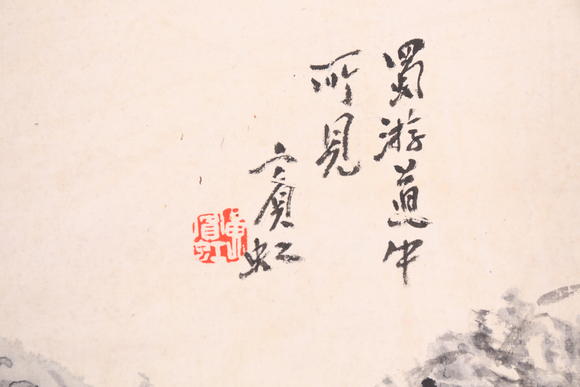 蜀游道中
所見
賓虹
黃賓虹